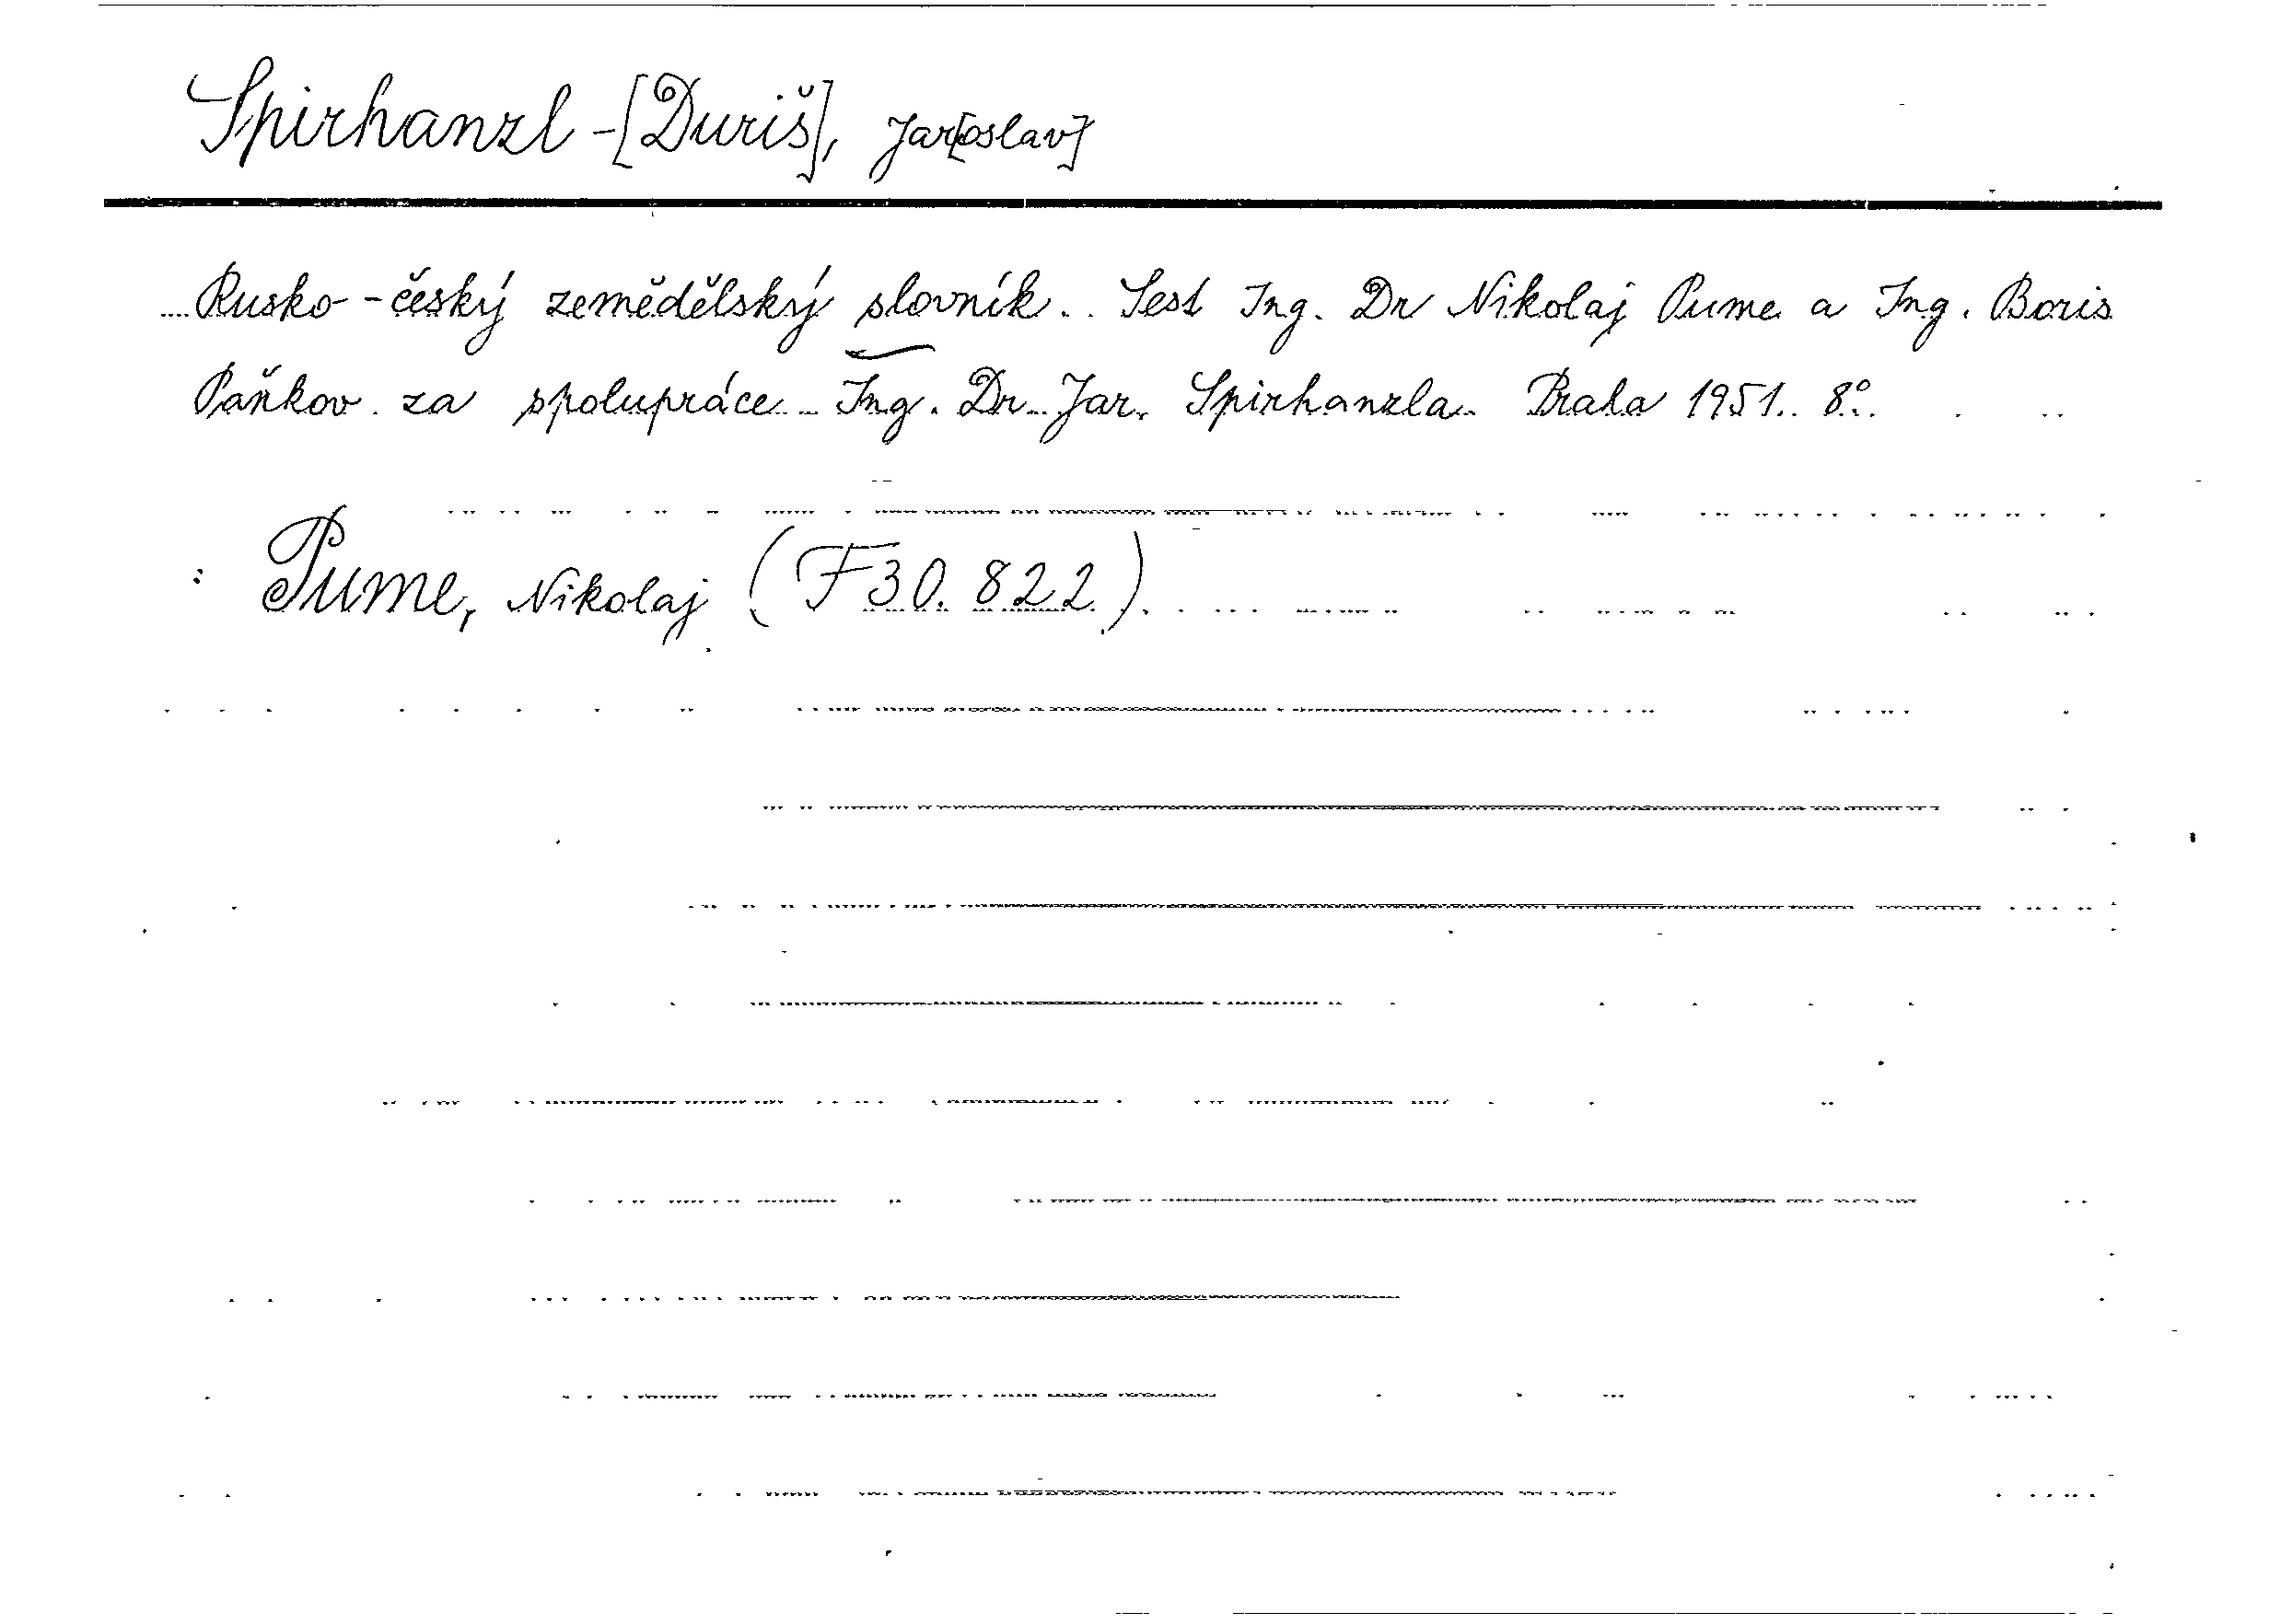 Spirhanzl-[Duriš], Jar[oslav]
Rusko-český zemědělský slovník. Sest Ing. Dr Nikolaj Pume a Ing. Boris
Paňkov za spolupráce Ing. Dr Jar. Spirhanzla. Praha 1951. 8°.
: Pume, Nikolaj (F 30.822)